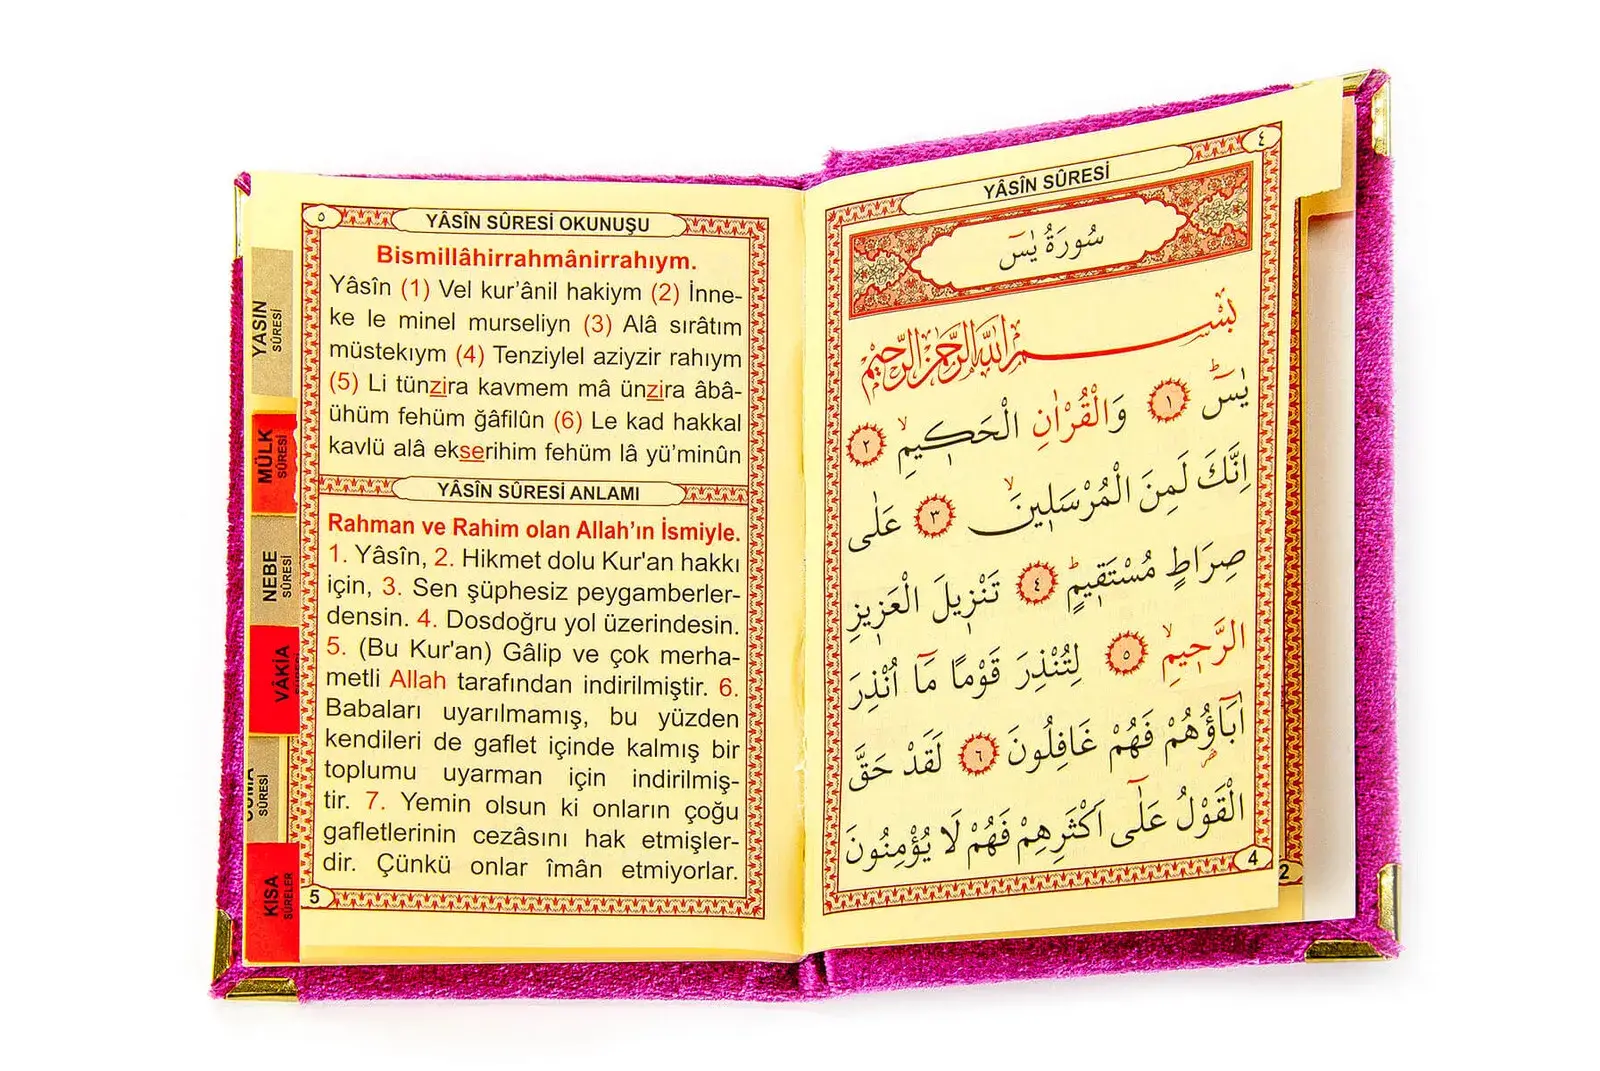 ٤
YÂSÎN SÛRESİ
سُورَةُ يٰسٓ
بِسْمِ اللّٰهِ الرَّحْمٰنِ الرَّحٖيمِ
يٰسٓ ١ وَالْقُرْاٰنِ الْحَكٖيمِ ٢
اِنَّكَ لَمِنَ الْمُرْسَلٖينَ ٣ عَلٰى
صِرَاطٍ مُسْتَقٖيمٍ ٤ تَنْزٖيلَ الْعَزٖيزِ
الرَّحٖيمِ ٥ لِتُنْذِرَ قَوْمًا مَٓا اُنْذِرَ
اٰبَٓاؤُ۬هُمْ فَهُمْ غَافِلُونَ ٦ لَقَدْ حَقَّ
الْقَوْلُ عَلٰٓى اَكْثَرِهِمْ فَهُمْ لَا يُؤْمِنُونَ
4
2
٥
YÂSÎN SÛRESİ OKUNUŞU
Bismillâhirrahmânirrahıym.
Yâsîn (1) Vel kur’ânil hakiym (2) İnne-
ke le minel murseliyn (3) Alâ sırâtım
müstekıym (4) Tenziylel aziyzir rahıym
(5) Li tünzira kavmem mâ ünzira âbâ-
ühüm fehüm ğâfilûn (6) Le kad hakkal
kavlü alâ ekserihim fehüm lâ yü’minûn
YÂSÎN SÛRESİ ANLAMI
Rahman ve Rahim olan Allah’ın İsmiyle.
1. Yâsîn, 2. Hikmet dolu Kur'an hakkı
için, 3. Sen şüphesiz peygamberler-
densin. 4. Dosdoğru yol üzerindesin.
5. (Bu Kur'an) Gâlip ve çok merha-
metli Allah tarafından indirilmiştir. 6.
Babaları uyarılmamış, bu yüzden
kendileri de gaflet içinde kalmış bir
toplumu uyarman için indirilmiş-
tir. 7. Yemin olsun ki onların çoğu
gafletlerinin cezâsını hak etmişler-
dir. Çünkü onlar îmân etmiyorlar.
5
YASIN
SÛRESİ
MÜLK
SÛRESİ
NEBE
SÛRESİ
VÂKIA
SÛRESİ
KISA
SÛRELER